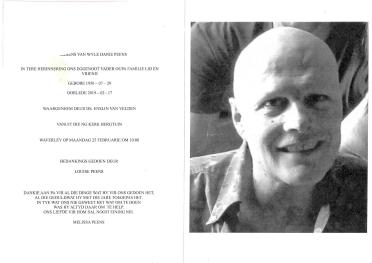 VAN WYLE DANIE PEENS
IN TERE HERINNERING ONS EGGENOOT VADER OUPA FAMILIE LID EN
VRIEND
GEBORE 1950 - 07 - 29
OORLEDE 2019 - 02 - 17
WAARGENEEM DEUR DS. ENSLIN VAN VELDEN
VANUIT DIE NG KERK BERGTUIN
WAVERLEY OP MAANDAG 25 FEBRUARIE OM 10:00
BEDANKINGS GEDOEN DEUR
LOUISE PEENS
DANKIE AAN PA VIR AL DIE DINGE WAT HY VIR ONS GEDOEN HET,
AL DIE GEDULD WAT HY MET DIE JARE TOEGEPAS HET.
IN TYE WAT ONS NIE GEWEET HET WAT OM TE DOEN
WAS HY ALTYD DAAR OM TE HELP.
ONS LIEFDE VIR HOM SAL NOOIT EINDIG NIE.
MELISSA PEENS